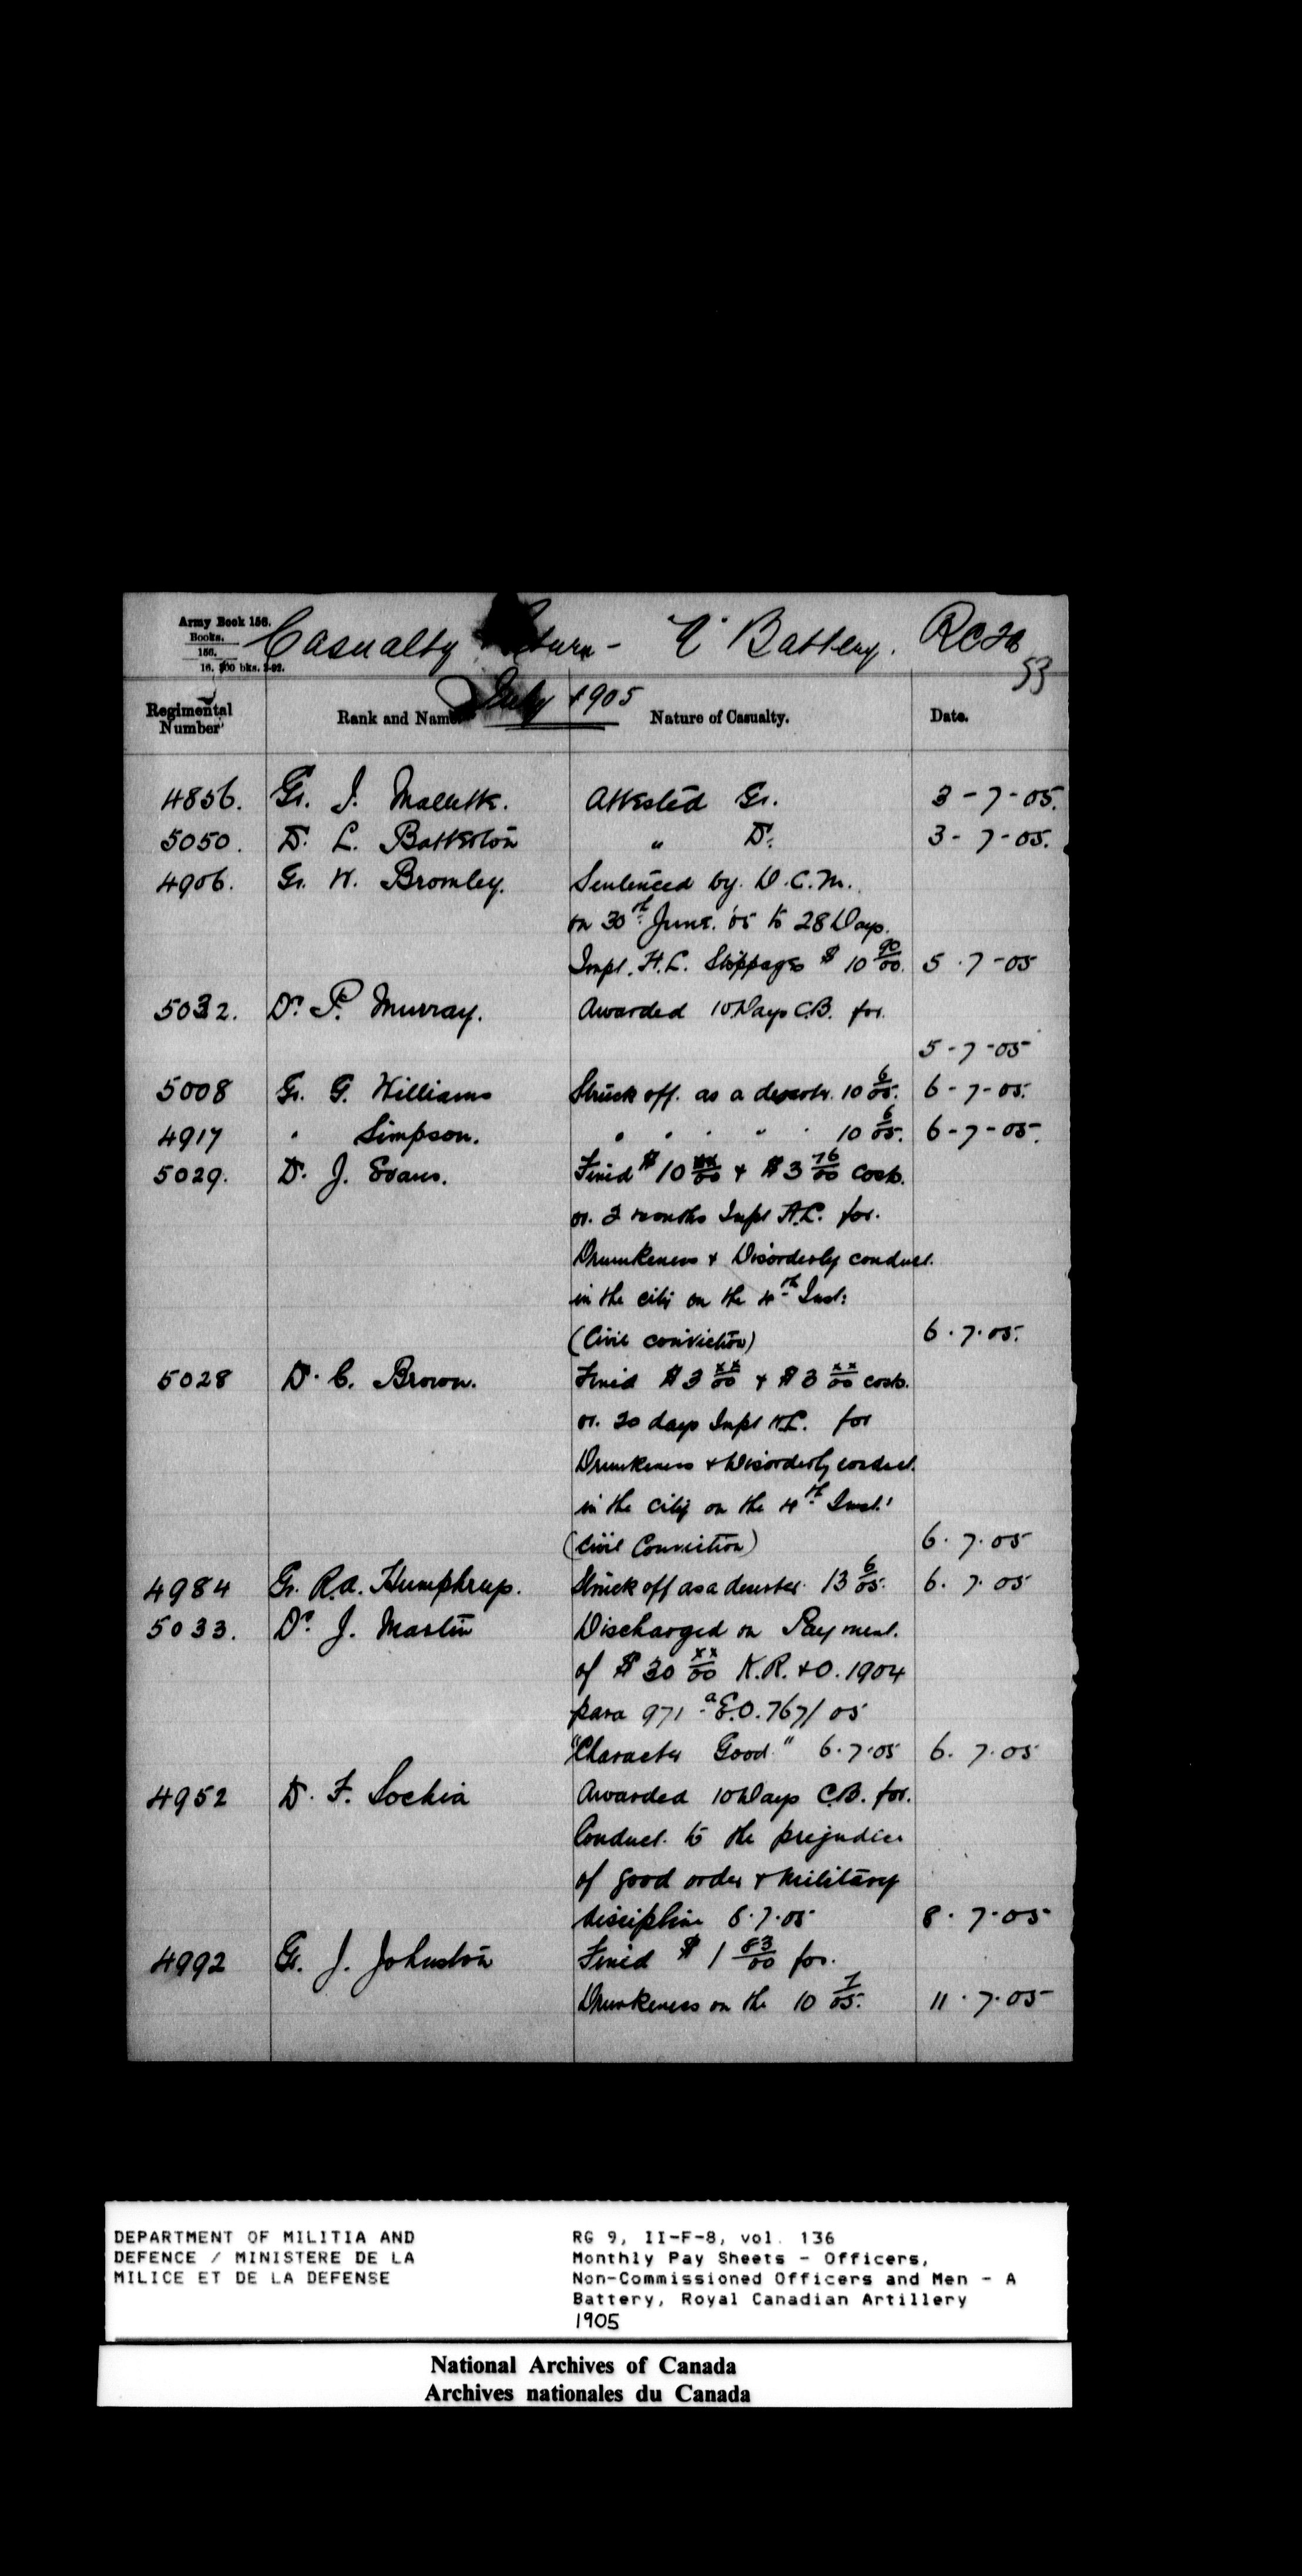 Army Book 156.
Books.
156.
16. 500 bks. 2-02.
Casualty Return - "A" Battery. RCHA
53
July 1905
Regimental Number
Rank and Name.
Nature of Casualty.
Date.
4856. Gr. J. Mallette. Attested Gr. 3-7-05.
5050. Dr. L. Batterton " Dr. 3-7-05.
4906. Gr. W. Bromley. Sentenced by D.C.M.
on 30th June. '05 to 28 Days.
Impt. H.L. Stoppages $ 10 90/00. 5.7-05
5032. Dr. P. Murray. Awarded 10 Days C.B. for.
5-7-05
5008 Gr. G. Williams Struck off. as a deserter. 10 6/05. 6-7-05.
4917 " Simpson. " " " " " 10 6/05. 6-7-05.
5029. Dr. J. Evans. Fined $10 xx/00 + $3 76/00 costs.
or. 2 months Impt H.L. for.
Drunkeness + Disorderly conduct.
in the city on the 4th Inst:
(Civil conviction) 6.7.05.
5028 Dr. C. Brown. Fined $3 xx/00 + $3 xx/00 costs.
or. 20 days Impt H.L. for
Drunkeness + Disorderly conduct.
in the city on the 4th Inst.
(Civil Conviction) 6.7.05
4984 Gr. R.A. Humphreys. Struck off as a deserter 13 6/05. 6.7.05
5033. Dr. J. Martin Discharged on Payment.
of $30 xx/00 K.R.+O. 1904
para 971 a G.O. 767/05
"Character Good." 6.7.05 6.7.05
4952 Dr. F. Lochia Awarded 10 Days C.B. for.
Conduct. to the prejudice
of good order + military
discipline 8.7.05 8.7.05
4992 Gr. J. Johnston Fined $1 83/00 for.
Drunkeness on the 10 7/05. 11.7.05
DEPARTMENT OF MILITIA AND
DEFENCE / MINISTERE DE LA
MILICE ET DE LA DEFENSE
RG 9, II-F-8, vol. 136
Monthly Pay Sheets - Officers,
Non-Commissioned Officers and Men - A
Battery, Royal Canadian Artillery
1905
National Archives of Canada
Archives nationales du Canada